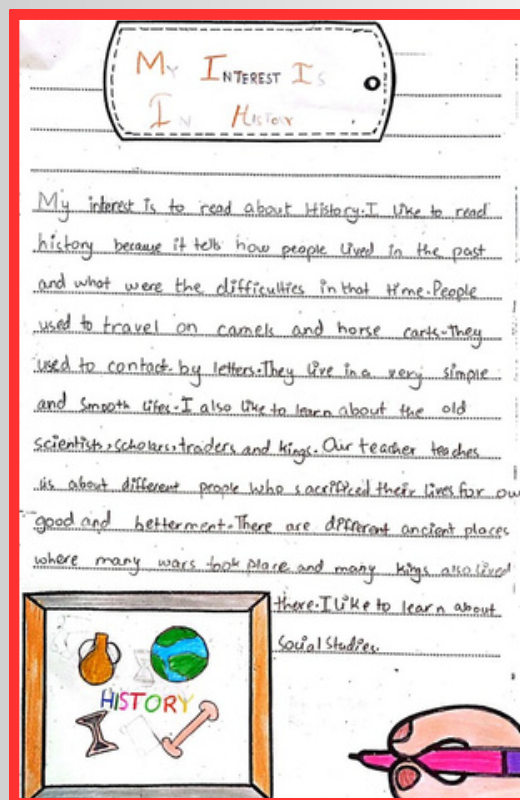 My Interest Is
In History
My interest is to read about History. I like to read
history because it tells how people lived in the past
and what were the difficulties in that time. People
used to travel on camels and horse carts. They
used to contact by letters. They live in a very simple
and smooth lifes. I also like to learn about the old
scientists, scholars, traders and kings. Our teacher teaches
us about different people who sacrificed their lives for our
good and betterment. There are different ancient places
where many wars took place and many kings also lived
there. I like to learn about
Social Studies.
HISTORY